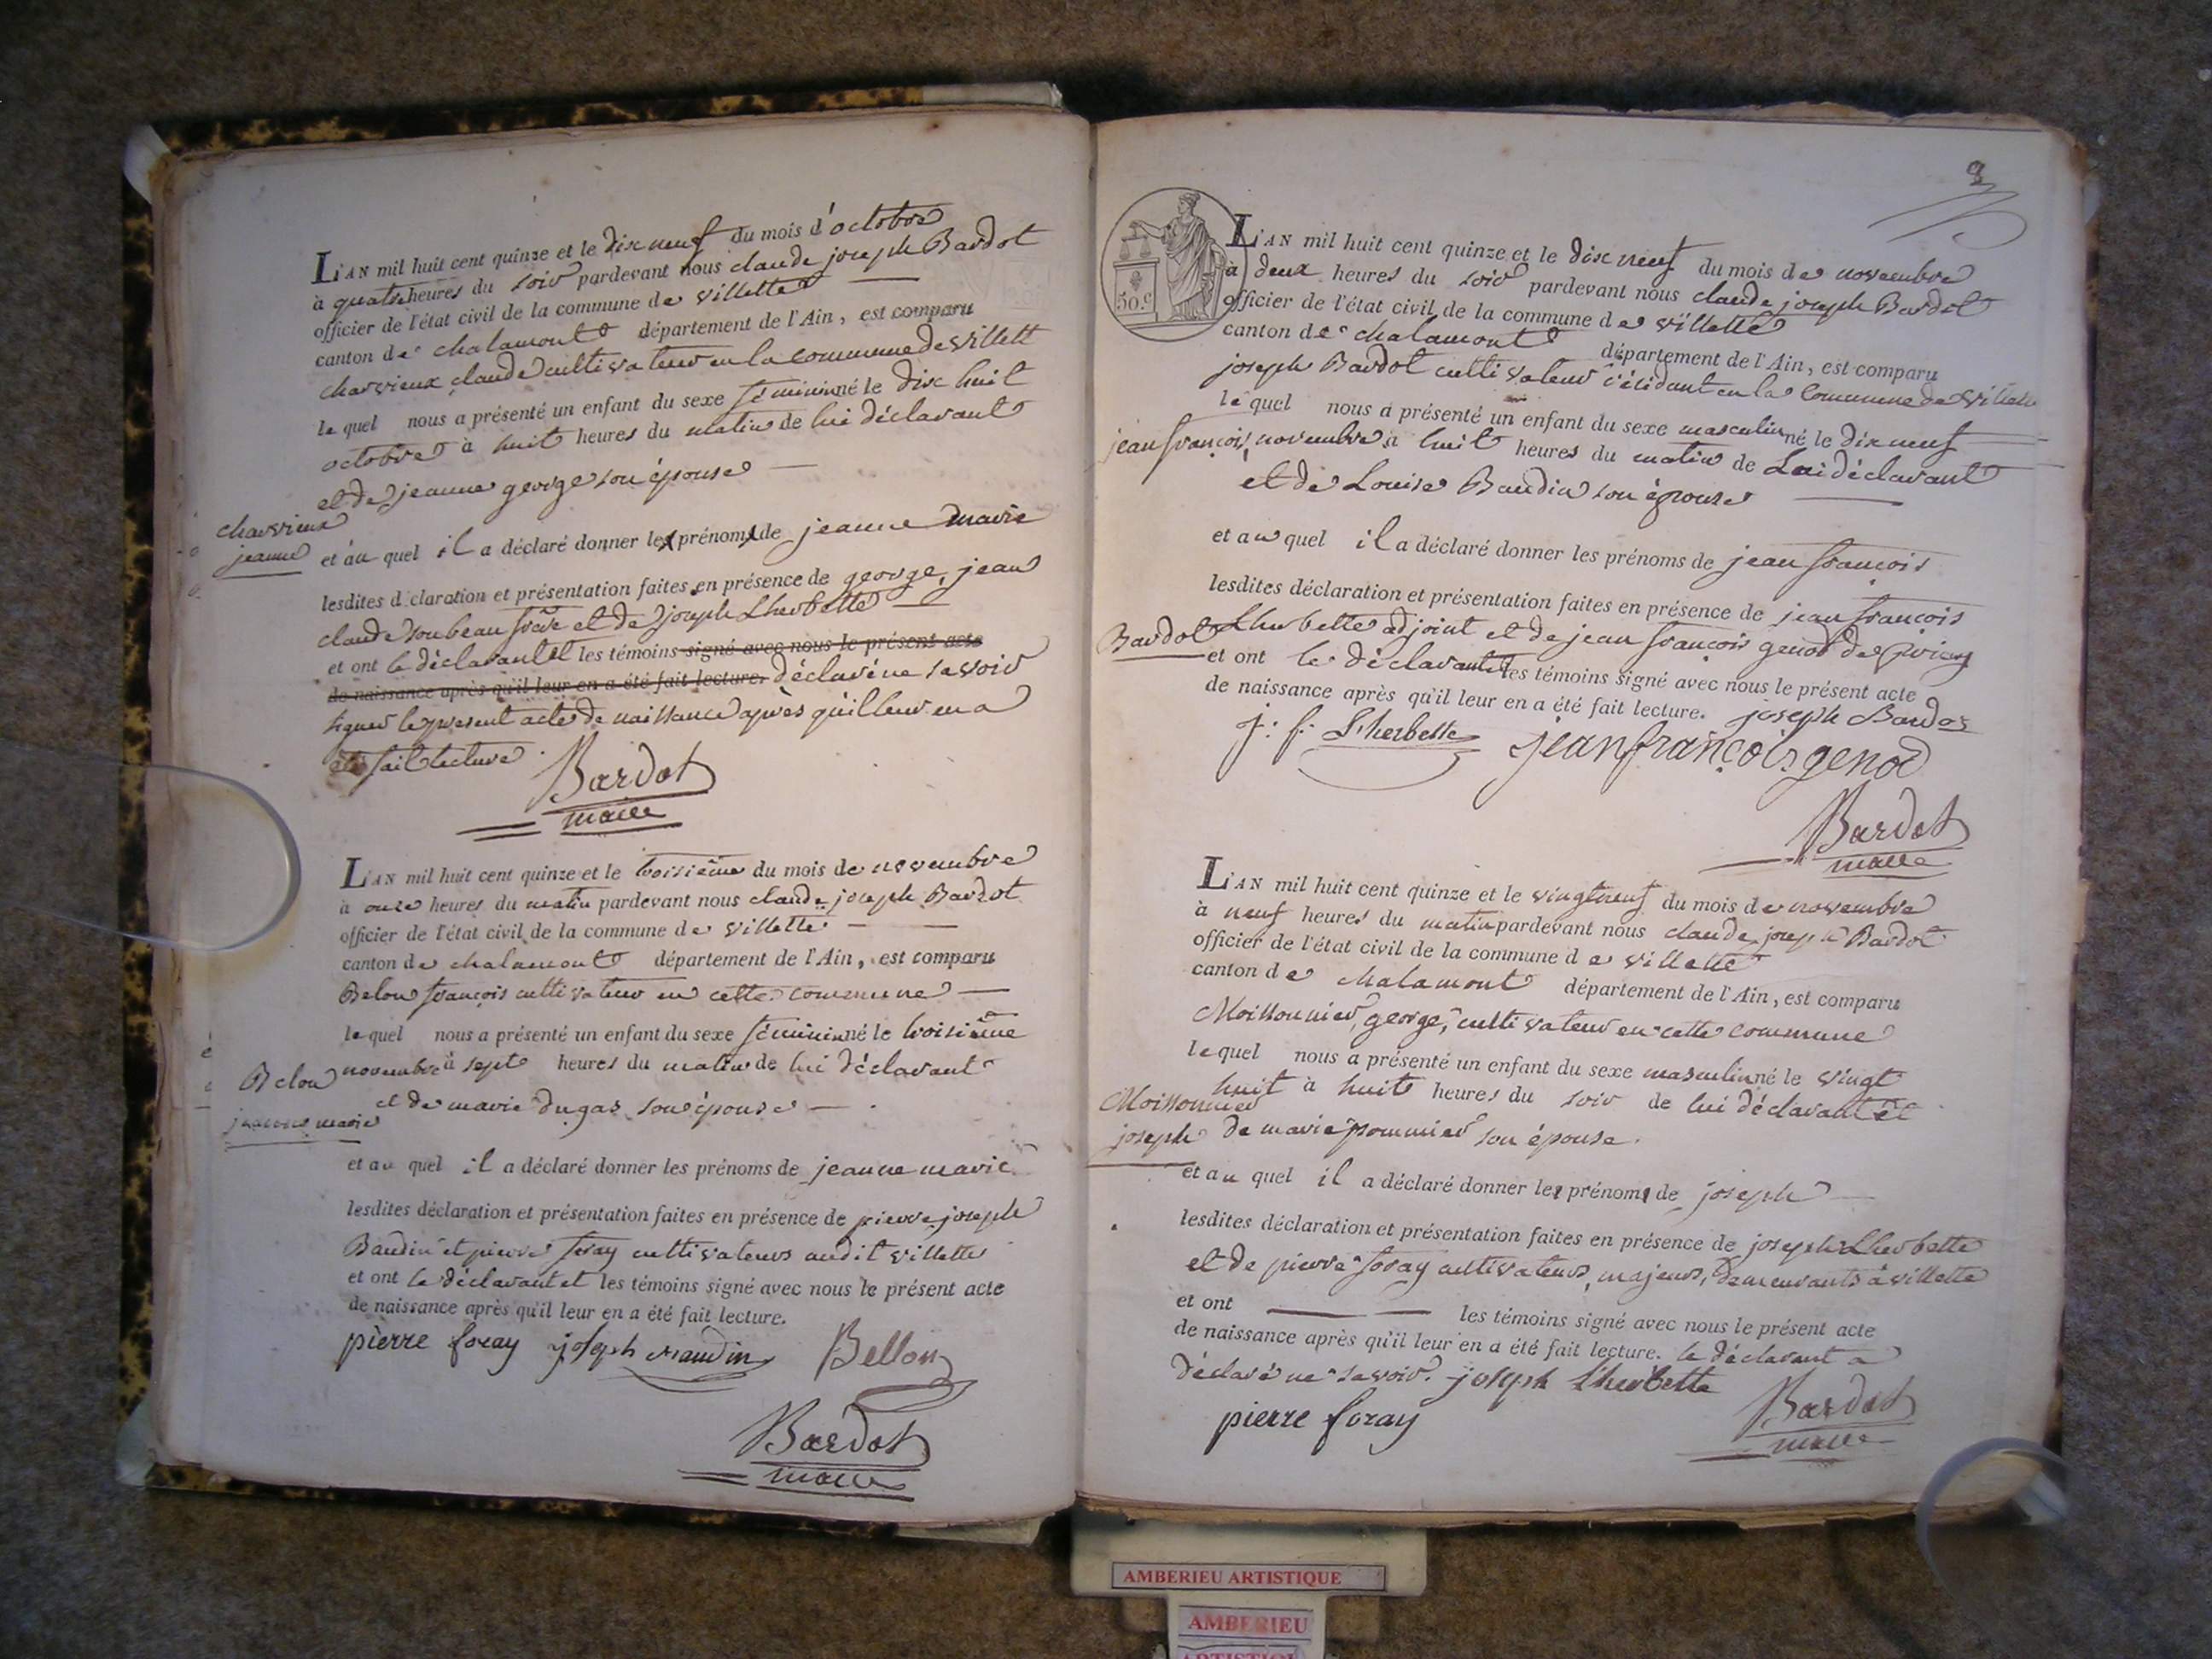 L'AN mil huit cent quinze et le dix neuf du mois d'octobre
à quatre heures du soir pardevant nous claude joseph Bardot
officier de l'état civil de la commune de villette
canton de chalamont département de l'Ain, est comparu
charvieux claude cultivateur en la commune de villett
le quel nous a présenté un enfant du sexe féminin né le dix huit
octobre à huit heures du matin de lui déclarant
et de jeanne george son épouse
charvieux
jeanne
et au quel il a déclaré donner les prénoms de jeanne marie
lesdites déclaration et présentation faites en présence de george, jean
claude son beau frère et de joseph Lherbette
et ont le déclarant et les témoins signé avec nous le présent acte
de naissance après qu'il leur en a été fait lecture. déclaré ne savoir
signer le present acte de naissance après qu'il leur en a
été fait lecture.
Bardot
maire
L'AN mil huit cent quinze et le troisième du mois de novembre
à onze heures du matin pardevant nous claude joseph Bardot
officier de l'état civil de la commune de villette
canton de chalamont département de l'Ain, est comparu
Belon françois cultivateur en cette commune
le quel nous a présenté un enfant du sexe féminin né le troisième
novembre à sept heures du matin de lui déclarant
Belon
jeanne marie
et de marie dugas son épouse
et au quel il a déclaré donner les prénoms de jeanne marie
lesdites déclaration et présentation faites en présence de pierre joseph
Baudin et pierre foray cultivateurs audit villette
et ont le déclarant et les témoins signé avec nous le présent acte
de naissance après qu'il leur en a été fait lecture.
pierre foray joseph Baudin Bellon
Bardot
maire
50.c
L'AN mil huit cent quinze et le dix neuf du mois de novembre
à deux heures du soir pardevant nous claude joseph Bardot
officier de l'état civil de la commune de villette
canton de chalamont département de l'Ain, est comparu
joseph Bardot cultivateur résidant en la Commune de villette
le quel nous a présenté un enfant du sexe masculin né le dix neuf
jean françois
novembre à huit heures du matin de Lui déclarant
et de Louise Baudin son épouse
et au quel il a déclaré donner les prénoms de jean françois
lesdites déclaration et présentation faites en présence de jean françois
Bardot
Lherbette adjoint et de jean françois genod de
et ont le déclarant et les témoins signé avec nous le présent acte
de naissance après qu'il leur en a été fait lecture. joseph Bardot
j: f: Lherbette jean françois genod
Bardot
maire
L'AN mil huit cent quinze et le vingt neuf du mois de novembre
à neuf heures du matin pardevant nous claude joseph Bardot
officier de l'état civil de la commune de villette
canton de chalamont département de l'Ain, est comparu
Moissonnier, george, cultivateur en cette commune
le quel nous a présenté un enfant du sexe masculin né le vingt
huit à huit heures du soir de lui déclarant et
Moissonnier
joseph
de marie pommier son épouse.
et au quel il a déclaré donner les prénoms de joseph
lesdites déclaration et présentation faites en présence de joseph Lherbette
et de pierre foray cultivateurs, majeurs, demeurants à villette
et ont les témoins signé avec nous le présent acte
de naissance après qu'il leur en a été fait lecture. le déclarant a
déclaré ne savoir. joseph Lherbette
pierre foray
Bardot
maire
AMBERIEU ARTISTIQUE
AMBERIEU
ARTISTIQUE